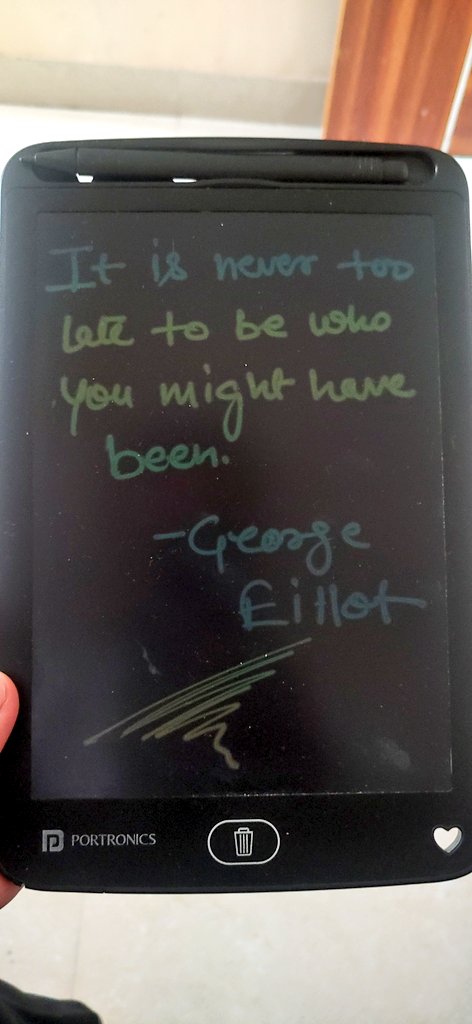 It is never too
late to be who
you might have
been.
-George
Eillot
PORTRONICS